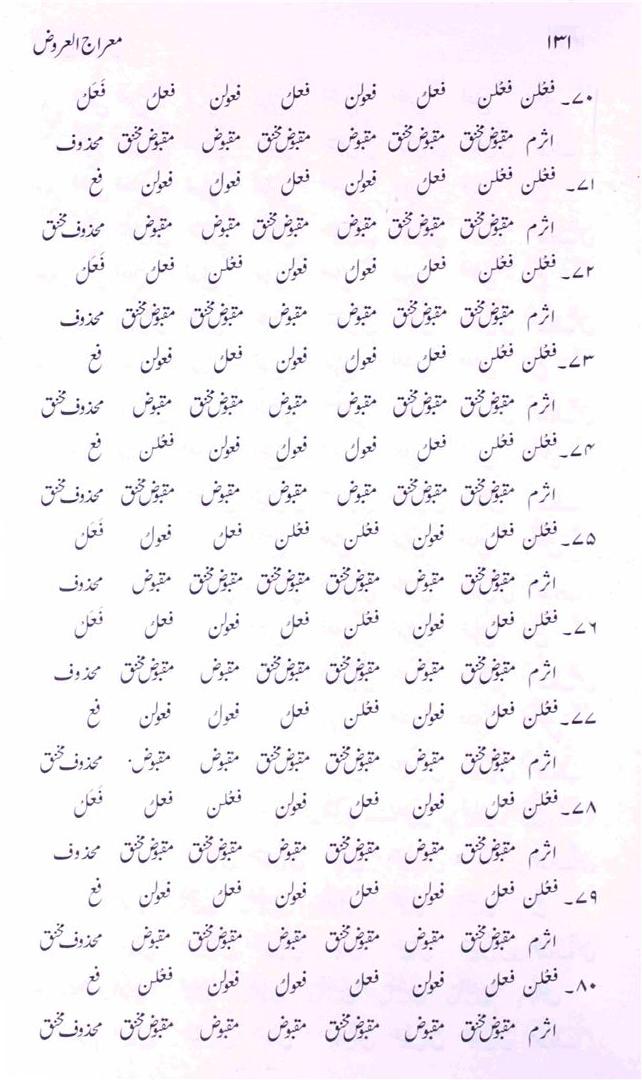 ۱۳۱ معراج العروض
۷۰۔ فعْلن فعْلن فعلُ فعولن فعلُ فعولن فعلُ فَعَل
اثرم مقبوض مخنق مقبوض مخنق مقبوض مقبوض مخنق مقبوض مقبوض مخنق محذوف
۷۱۔ فعْلن فعْلن فعلُ فعولن فعلُ فعولُ فعولن فع
اثرم مقبوض مخنق مقبوض مخنق مقبوض مقبوض مخنق مقبوض مقبوض محذوف مخنق
۷۲۔ فعْلن فعْلن فعلُ فعولُ فعولن فعْلن فعلُ فَعَل
اثرم مقبوض مخنق مقبوض مخنق مقبوض مقبوض مقبوض مخنق مقبوض مخنق محذوف
۷۳۔ فعْلن فعْلن فعلُ فعولُ فعولن فعلُ فعولن فع
اثرم مقبوض مخنق مقبوض مخنق مقبوض مقبوض مقبوض مخنق مقبوض محذوف مخنق
۷۴۔ فعْلن فعْلن فعلُ فعولُ فعولُ فعولن فعْلن فع
اثرم مقبوض مخنق مقبوض مخنق مقبوض مقبوض مقبوض مقبوض مخنق محذوف مخنق
۷۵۔ فعْلن فعلُ فعولن فعْلن فعْلن فعلُ فعولُ فَعَل
اثرم مقبوض مخنق مقبوض مقبوض مخنق مقبوض مخنق مقبوض مخنق مقبوض محذوف
۷۶۔ فعْلن فعلُ فعولن فعْلن فعلُ فعولن فعلُ فَعَل
اثرم مقبوض مخنق مقبوض مقبوض مخنق مقبوض مخنق مقبوض مقبوض مخنق محذوف
۷۷۔ فعْلن فعلُ فعولن فعْلن فعلُ فعولُ فعولن فع
اثرم مقبوض مخنق مقبوض مقبوض مخنق مقبوض مخنق مقبوض مقبوض۔ محذوف مخنق
۷۸۔ فعْلن فعلُ فعولن فعلُ فعولن فعْلن فعلُ فَعَل
اثرم مقبوض مخنق مقبوض مقبوض مخنق مقبوض مقبوض مخنق مقبوض مخنق محذوف
۷۹۔ فعْلن فعلُ فعولن فعلُ فعولن فعلُ فعولن فع
اثرم مقبوض مخنق مقبوض مقبوض مخنق مقبوض مقبوض مخنق مقبوض محذوف مخنق
۸۰۔ فعْلن فعلُ فعولن فعلُ فعولُ فعولن فعْلن فع
اثرم مقبوض مخنق مقبوض مقبوض مخنق مقبوض مقبوض مقبوض مخنق محذوف مخنق